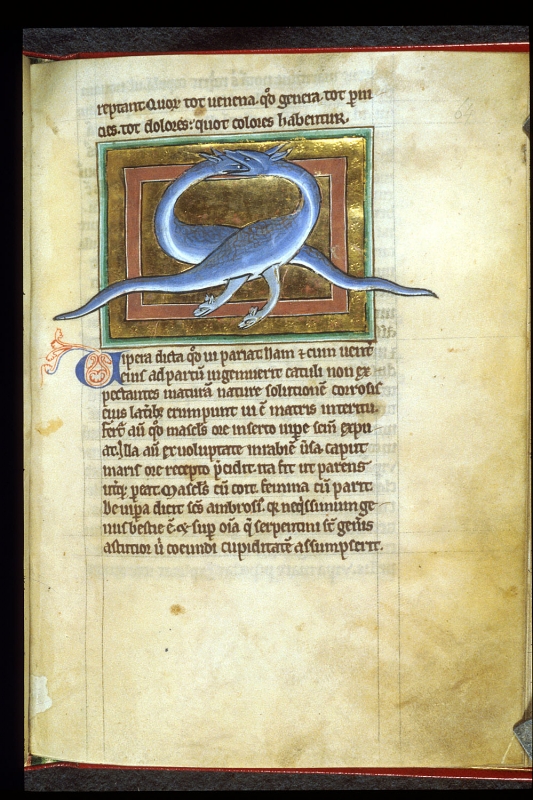 reptant. Quoꝝ tot uenena. qͦd genera. tot ꝑni
cies. tot dolores: quot colores habentur.
Vipera dicta qͦd ui pariat. Nam ⁊ cum uent̄
eius ad partū ingemuerit catuli non ex
pectantes maturā nature solutionē corrosis
eius laterib; erumpunt ui cē matris interitu.
Fert̄ aū qͦd masclꝰ ore inserto uipe semī expu
at. Illa aū ex uoluptate in rabiē ūsa caput
maris ore recepto p̄cidit. ita fit ut parens
utqꝫ pereat. Masclꝰ cū coit. femina cū parit.
De uip̄a dicit scs̄ ambrosiꝰ. qꝛ neqͥssimum ge
nus bestie ē. ⁊ sup̄ oīa q̄ serpentini st̄ geñis
astutior. ū coeundi cupiditatē assumpserit.